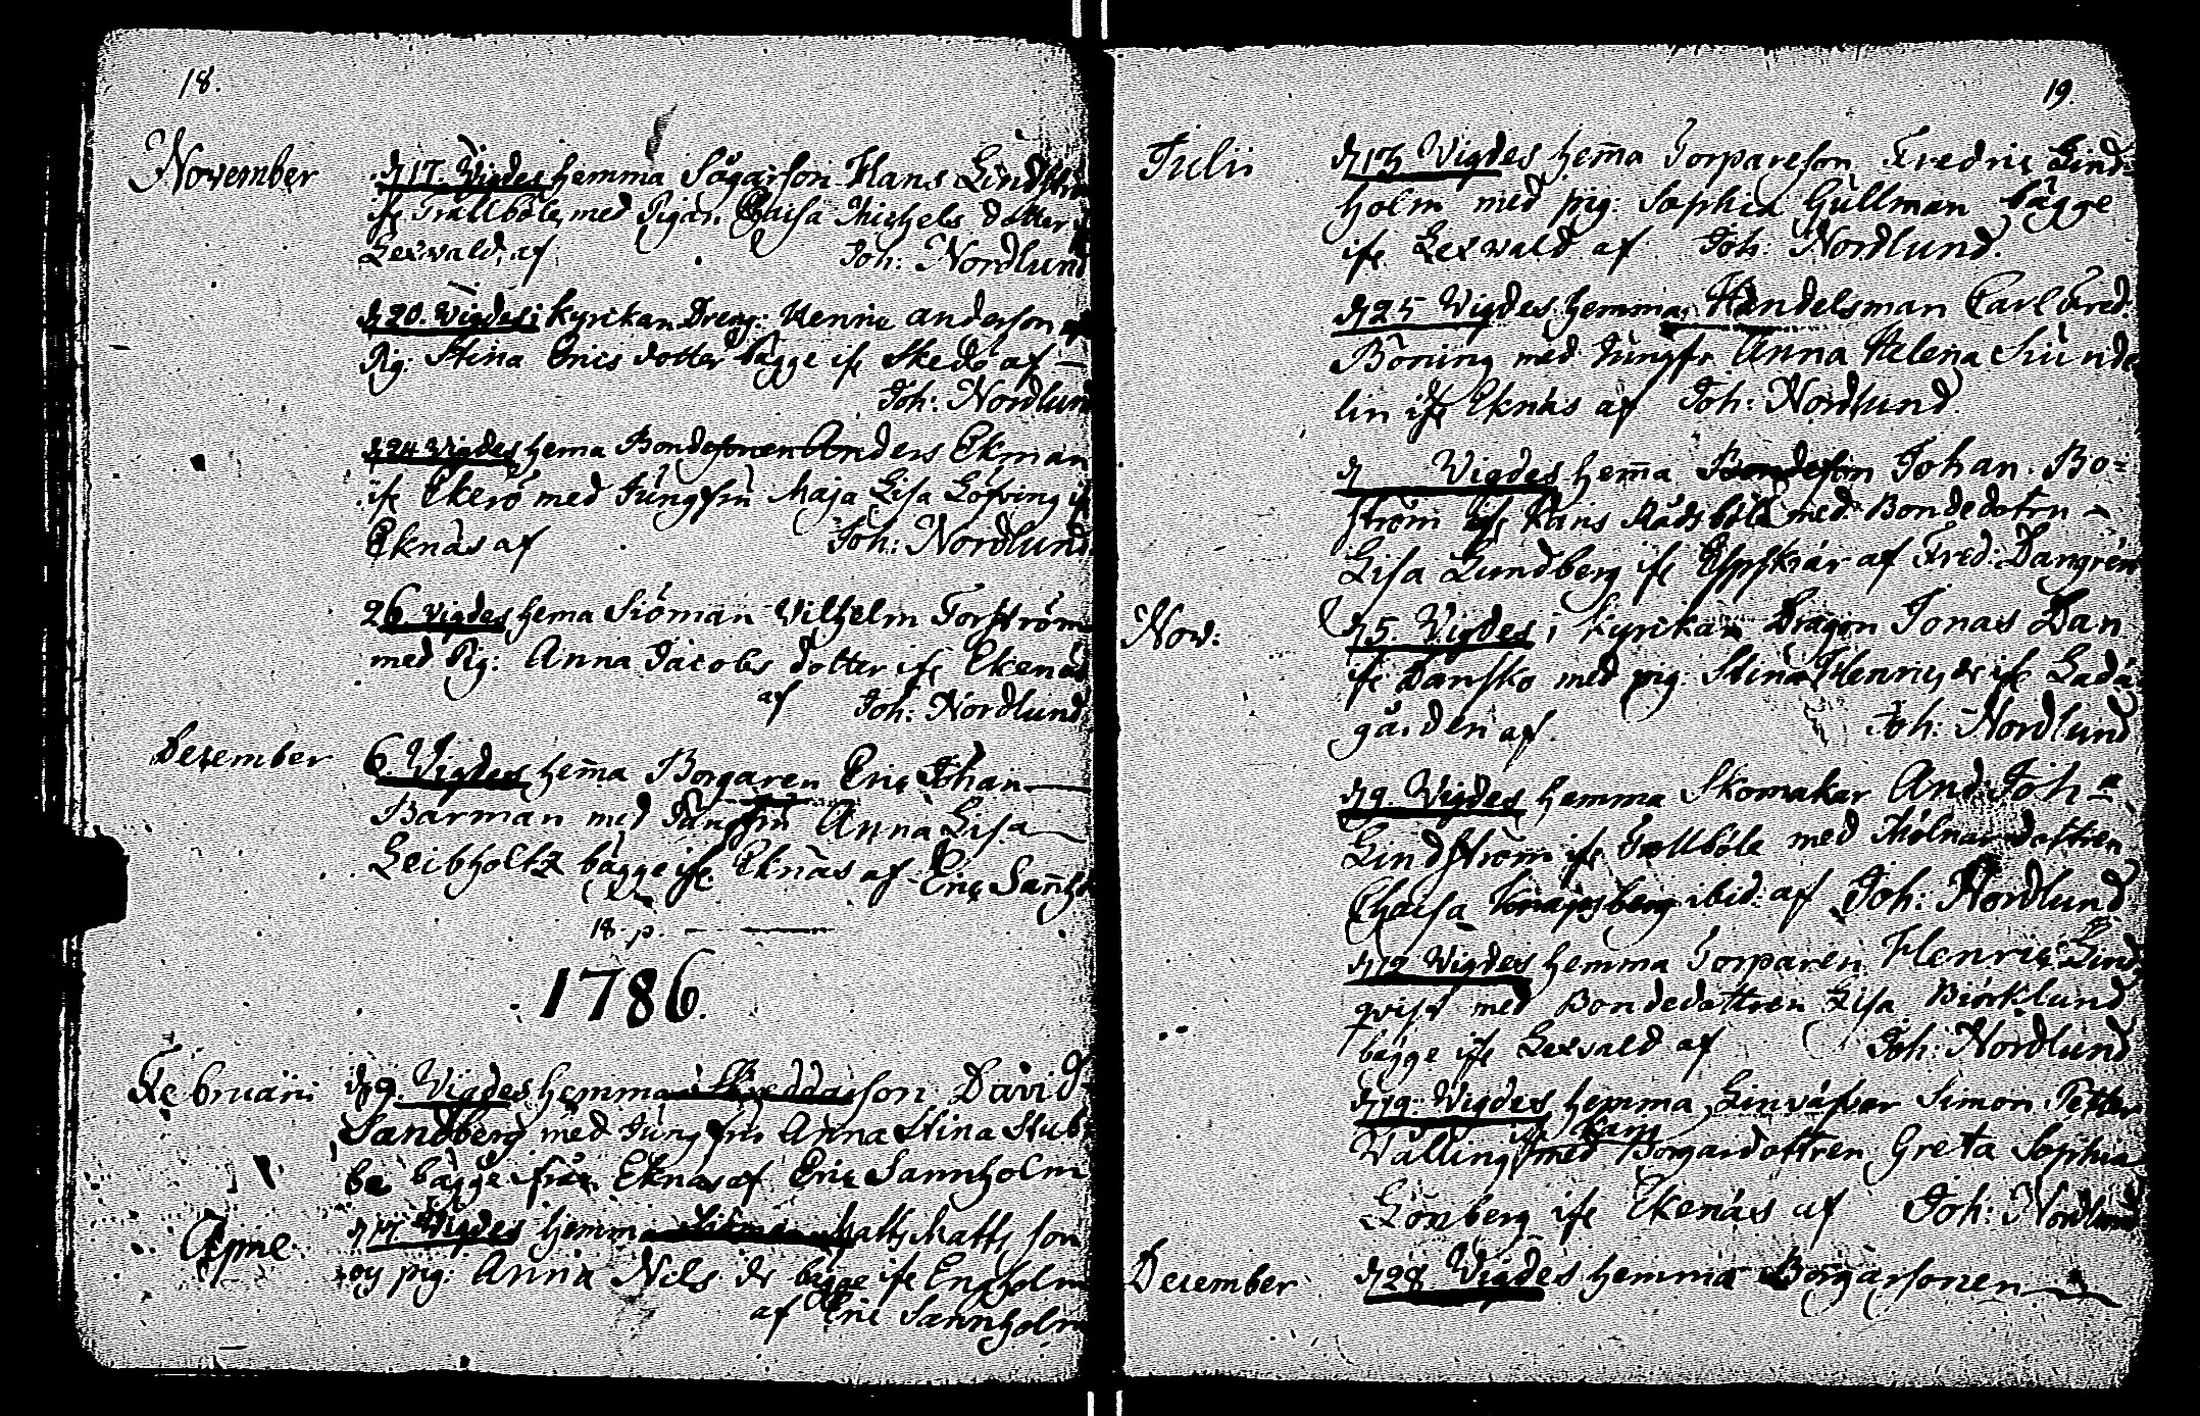 18.
November
d 17. Vigdes hemma Sågarson Hans Lindström
ifr Trällböle, med Pigan Chaisa Michels dotter
Lexvald, af Joh: Nordlund
d 20. Vigdes i kyrkan Dreng: Henric anderson
Pig: Stina Erics dotter bägge ifr Skedö af –
Joh: Nordlund
d 24 Vigdes hema Bondesonen Anders Ekman
ifr Ekerö med Jungfru Maja Lisa Löfving ifr
Eknäs af Joh: Nordlund
26. Vigdes hema Siöman Vilhelm Forsström
med Pig: Anna Jacobs dotter ifr Ekenäs
af Joh: Nordlund
December
6. Vigdes hem̄a Borgaren Eric Johan
Barman med Jungfru Anna Lisa
Leibholtz bägge ifr Eknäs af Eric Sanh
18. p.
1786.
Februarii
d 9. Vigdes hemma Skeddarson David
Sandberg med Jungfru Anna Stina Stub
be bägge ifrån Eknäs af Eric Sannholm
d 17. Vigdes hemma Matts Matts son
och pig: Anna Nils dr bägge ifr Engholm
af Eric Sannholm
19.
Julii
d 13 Vigdes hem̄a Torpareson Fredric Lind=
holm med pig: Sophia Gullman bägge
ifr Lexvald af Joh: Nordlund.
d 25 Vigdes hemma, Handelsman Carl Fred:
Böning med Jungfr Anna Helena Siunde
lin ifr Eknäs af Joh: Nordlund.
d Vigdes hem̄a Bondeson Johan Bo=
ström ifr Karis Rådsböle med Bondedotrn –
Lisa Lundberg ifr Espskiär af Fred: Dangrén
Nov:
d 5. Vigdes i kyrikan Dragon Jonas Dan
ifr Dansko med pig: Stina Henrics dr ifr Ladu
gården af. Joh: Nordlund
d 9. Vigdes hemma Skomakar And: Joh:
Lindström ifr Trällböle med Mölnardottren
Chaisa ibid: af Joh: Nordlund
d 12 Vigdes hemma Torparen Henric Lind
qvist med Bondedottren Lisa Biörklund
bägge ifr Lexvald af Joh: Nordlund
d 19. Vigdes hemma Linväfver Simon Petter
Valling ifr Karis med Borgardottren Greta Sophia
Lönberg ifr Ekenäs af Joh: Nordlund
December
d 28 Vigdes hemma Borgarsonen